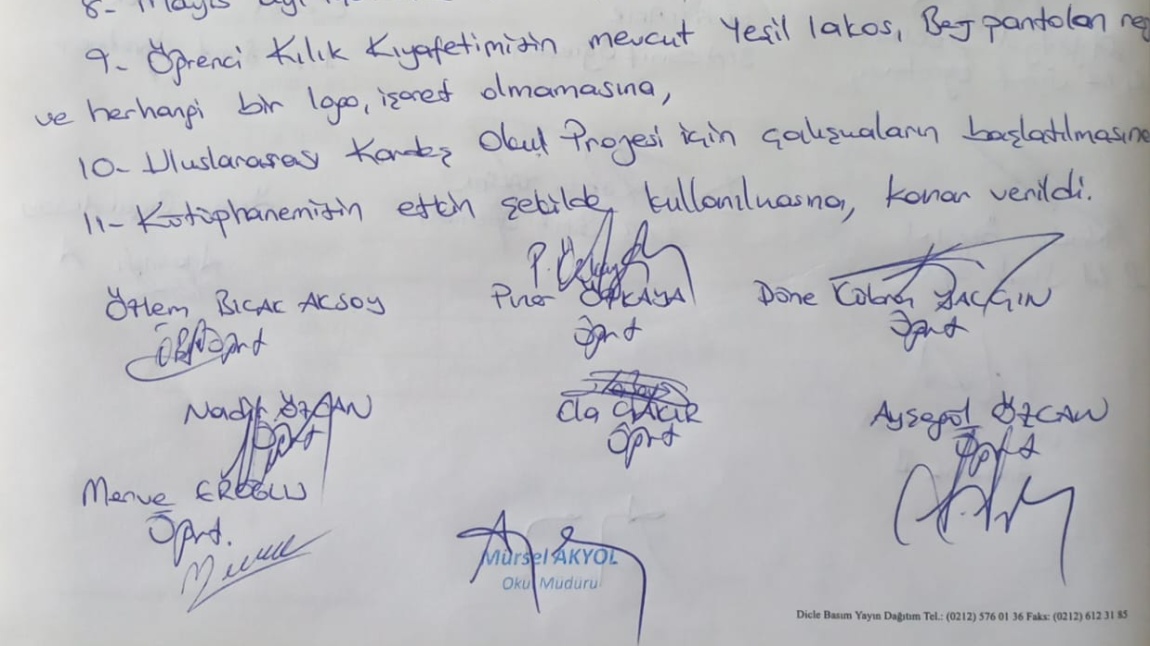 8- Mayıs ayı
9- Öğrenci Kılık Kıyafetimizin mevcut Yeşil lakos, Bej pantolon
ve herhangi bir logo, işaret olmamasına,
10- Uluslararası Kardeş Okul Projesi için çalışmaların başlatılmasına
11- Kütüphanemizin etkin şekilde kullanılmasına, karar verildi.
Özlem BIÇAK AKSOY Pınar ÖZKAYA Döne Kübra
Öğrt Öğrt Öğrt
Nadir ÖZCAN Ela ÇAKIR Ayşegül ÖZCAN
Öğrt Öğrt Öğrt
Merve EROĞLU
Öğrt.
Mürsel AKYOL
Okul Müdürü
Dicle Basım Yayın Dağıtım Tel.: (0212) 576 01 36 Faks: (0212) 612 31 85